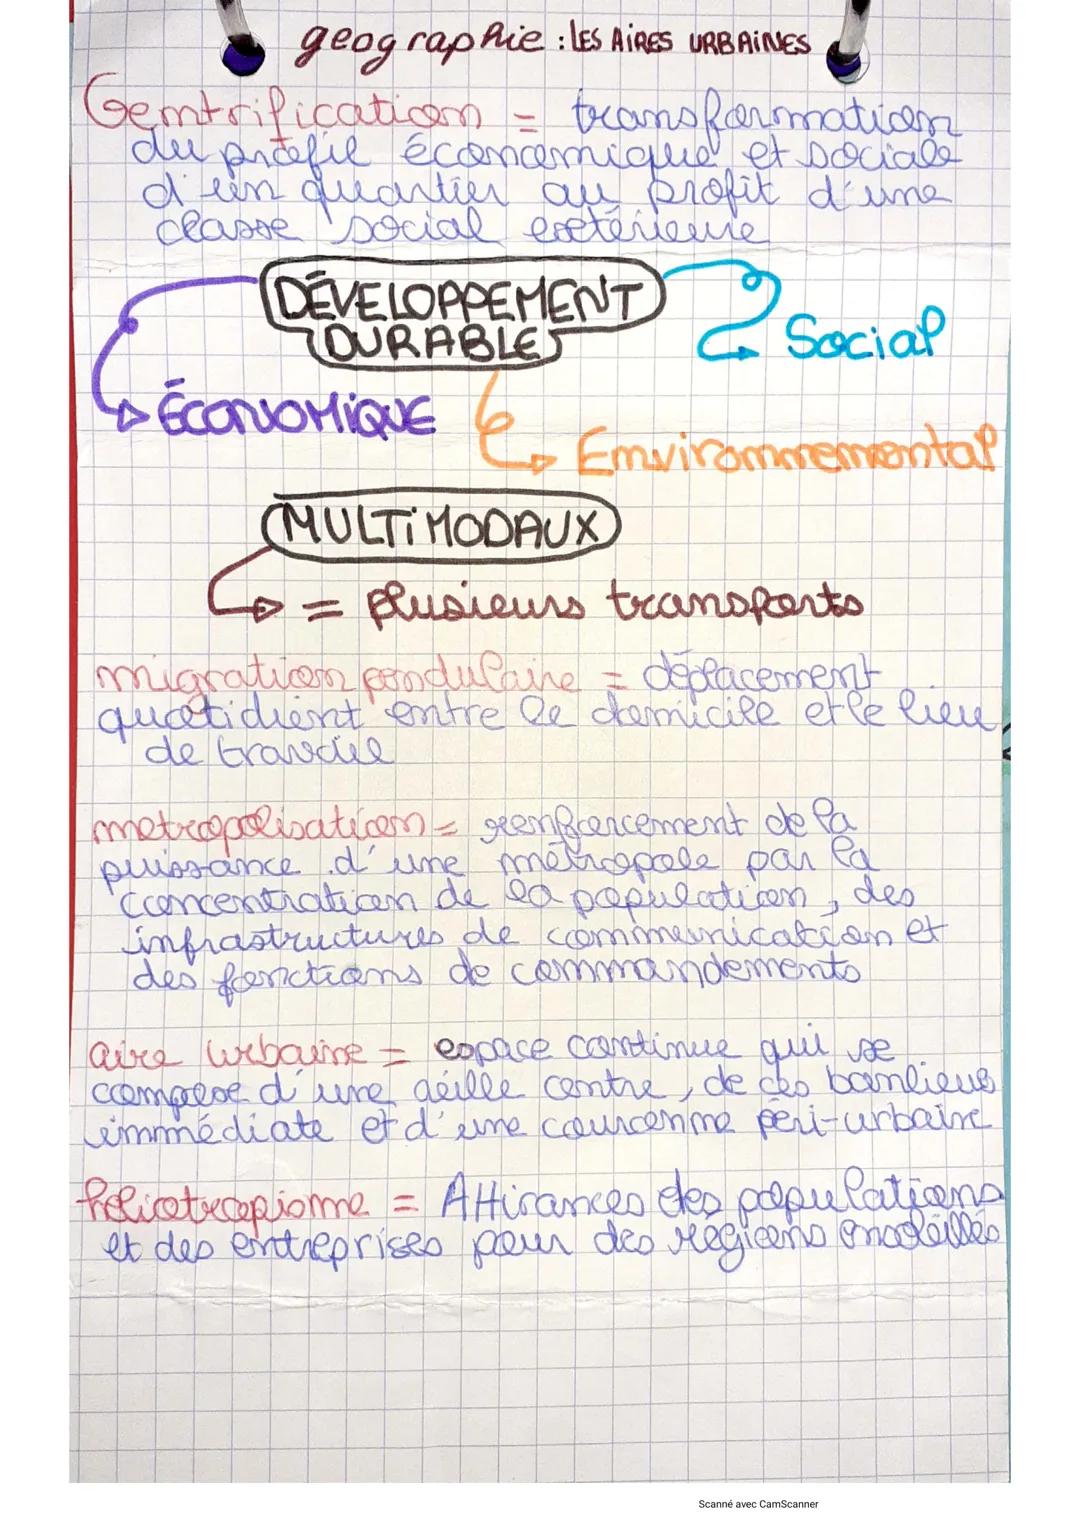 geographie : LES AIRES URBAINES
Gentrification = transformation
du profil économique et sociale
d'un quartier au profit d'une
classe social extérieure
DÉVELOPPEMENT
DURABLE
Social
ÉCONOMIQUE
Environnemental
MULTIMODAUX
= plusieurs transports
migration pendulaire = déplacement
quotidient entre le domicile et le lieu
de travail
metropolisation = renforcement de la
puissance d'une métropole par la
concentration de la population, des
infrastructures de communication et
des fonctions de commandements
aire urbaine = espace continue qui se
compose d'une ville centre, de ces banlieus
immédiate et d'une couronne péri-urbaine
héliotropisme = Attirances des populations
et des entreprises pour des régions
Scanné avec CamScanner